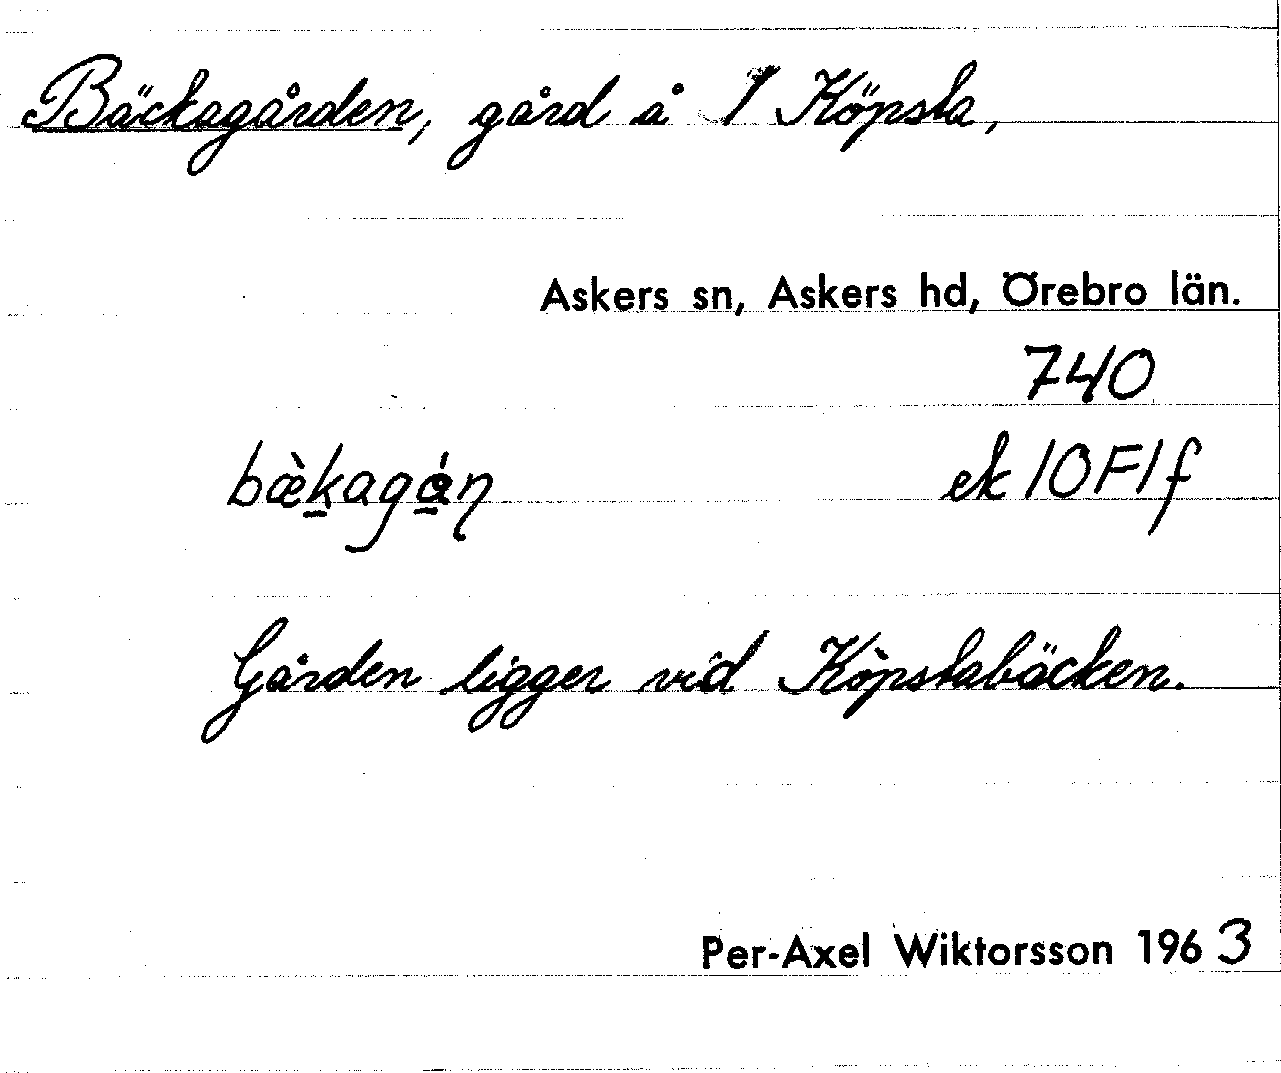 Bäckagården, gård å 1 Köpsta,
Askers sn, Askers hd, Örebro län.
740
bæ̀ḵagǻ̱ṇ ek 10F1f
Gården ligger vid Köpstabäcken.
Per-Axel Wiktorsson 1963